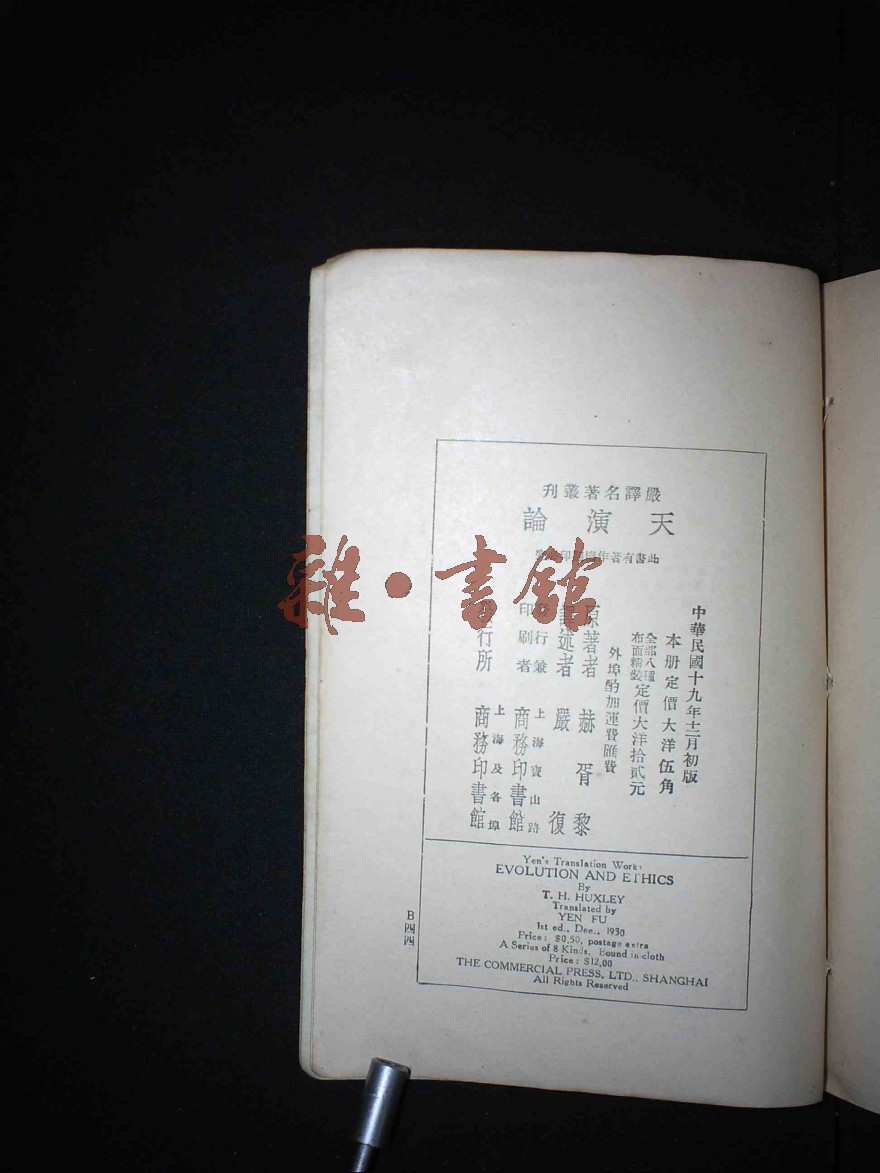 嚴譯名著叢刊
天演論
此書有著作權翻印必究
中華民國十九年十二月初版
本册定價大洋伍角
全部八種
布面精裝
定價大洋拾貳元
外埠酌加運費匯費
原著者 赫胥黎
譯述者 嚴復
發行兼
印刷者
上海寶山路
商務印書館
發行所
上海及各埠
商務印書館
Yen's Translation Works
EVOLUTION AND ETHICS
By
T. H. HUXLEY
Translated by
YEN FU
1st ed., Dec., 1930
Price: $0.50, postage extra
A Series of 8 Kinds. Bound in cloth
Price: $12,00
THE COMMERCIAL PRESS, LTD., SHANGHAI
All Rights Reserved
B四四
雜·書館